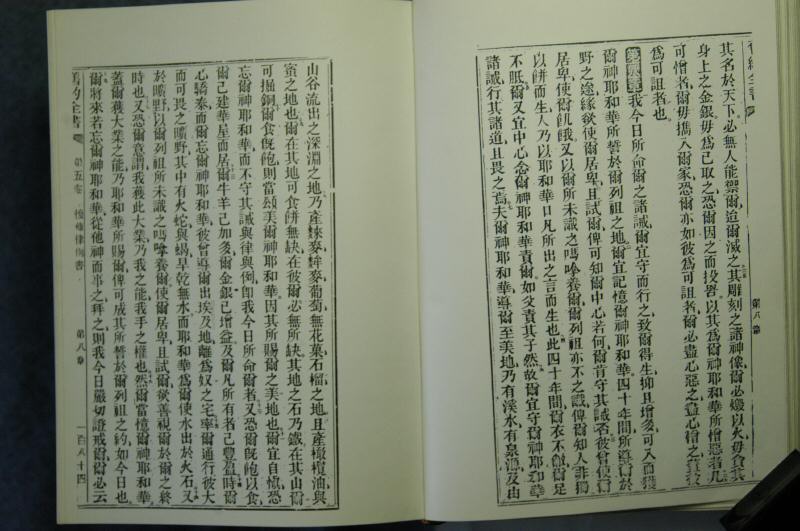 舊約全書
第八章
其名於天下必無人能禦爾迨爾滅之其雕刻之諸神像爾必燬以火毋貪其
身上之金銀毋爲己取之恐爾因之而投罟以其爲爾神耶和華所憎惡者凡
可憎者爾毋攜入爾家恐爾亦如彼爲可詛者爾必盡心惡之盡心憎之
爲可詛者也
我今日所命爾之諸誡爾宜守而行之致爾得生抑且增多可入而獲
爾神耶和華所誓於爾列祖之地爾宜記憶爾神耶和華四十年間所導爾於
野之途緣欲使爾居卑且試爾俾可知爾中心若何爾肯守其誡否彼曾使爾
居卑使爾飢餓又以爾所未識之嗎哈養爾爾列祖亦不之識俾爾知人非獨
以餅而生人乃以耶和華口凡所出之言而生也此四十年間爾衣不敝爾足
不胝爾又宜中心念爾神耶和華責爾如父責其子然故爾宜守爾神耶和華
諸誡行其諸道且畏之焉夫爾神耶和華導爾至美地乃有溪水有泉源及由
山谷流出之深淵之地乃產麥牟麥葡萄無花菓石榴之地且產橄欖油與
蜜之地也爾在其地可食餅無缺在彼爾必無所缺其地之石乃鐵在其山爾
可掘銅爾食旣飽則當頌美爾神耶和華因其所賜爾之美地也爾宜自慎恐
忘爾神耶和華而不守其誡與律與例卽我今日所命爾者又恐爾旣飽以食
爾已建華屋而居爾牛羊已加多爾金銀已增益及爾凡所有者已豐盈時爾
心驕泰而爾忘爾神耶和華彼曾導爾出埃及地離爲奴之宅率爾通行彼大
而可畏之曠野其中有火蛇與蝎旱乾無水而耶和華爲爾使水出於火石又
於曠野以爾列祖所未識之嗎哈養爾使爾居卑且試爾欲善視爾於爾之終
時也又恐爾意謂我獲此大業乃我之能我手之權也然爾當憶爾神耶和華
蓋爾獲大業之能乃耶和華所賜爾俾可成其所誓於爾列祖之約如今日也
爾將來若忘爾神耶和華從他神而事之拜之則我今日嚴切證戒爾爾必云
舊約全書 第五卷 復傳律例書 第八章 一百八十四